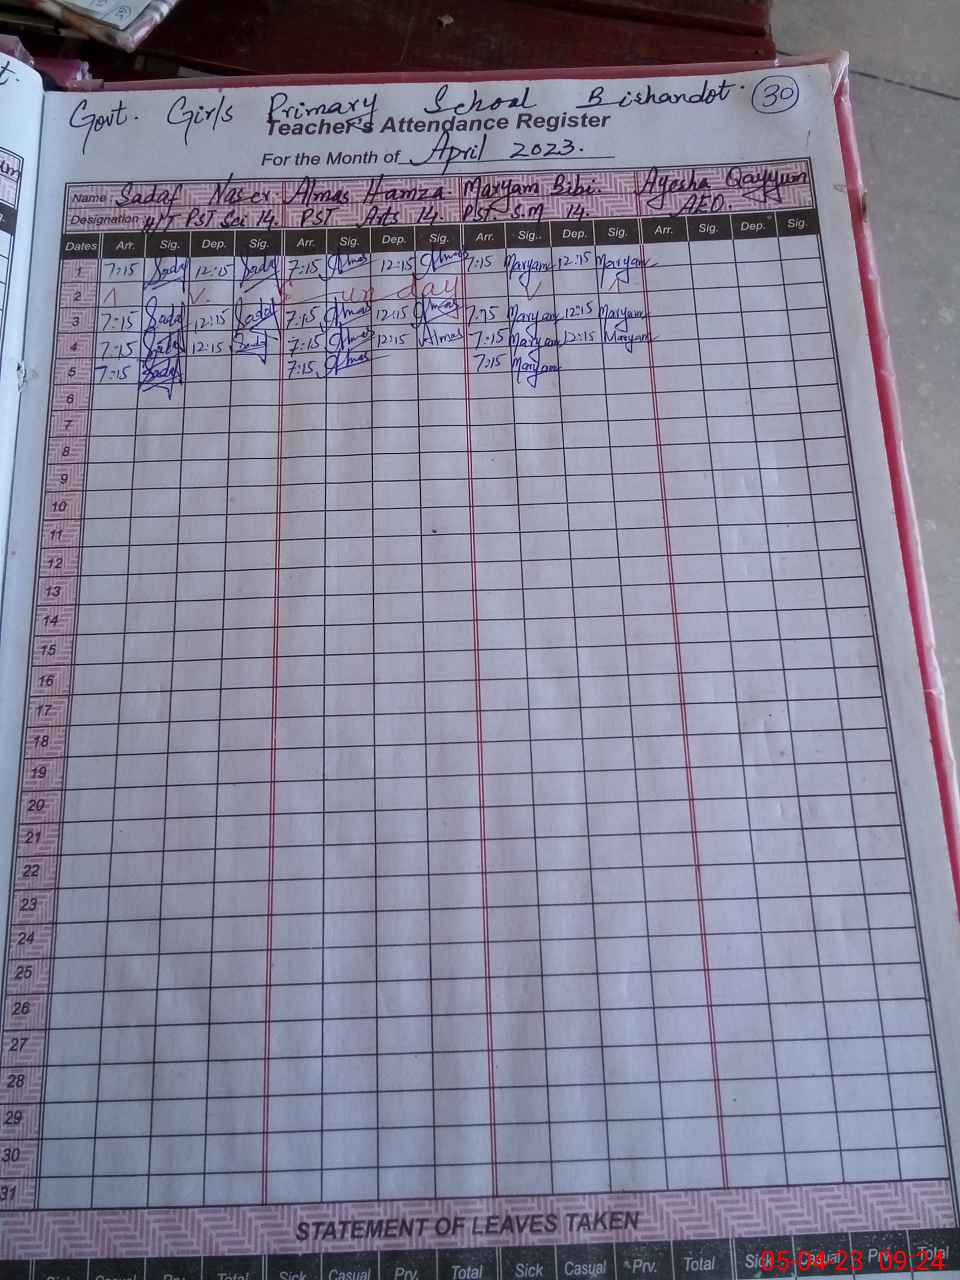 Govt. Girls Primary School Bishandot. 30
Teacher's Attendance Register
For the Month of April 2023.
Name : Sadaf Naser Almas Hamza Maryam Bibi. Ayesha Qayyum
Designation : H/T PST Sci 14. PST Arts 14. PST S.M 14. AEO.
Dates Arr. Sig. Dep. Sig. Arr. Sig. Dep. Sig. Arr. Sig. Dep. Sig. Arr. Sig. Dep. Sig.
1 7:15 Sadaf 12:15 Sadaf 7:15 Almas 12:15 Almas 7:15 Maryam 12:15 Maryam
2 Sunday
3 7:15 Sadaf 12:15 Sadaf 7:15 Almas 12:15 Almas 7:15 Maryam 12:15 Maryam
4 7:15 Sadaf 12:15 Sadaf 7:15 Almas 12:15 Almas 7:15 Maryam 12:15 Maryam
5 7:15 Sadaf 7:15 Almas 7:15 Maryam
6
7
8
9
10
11
12
13
14
15
16
17
18
19
20
21
22
23
24
25
26
27
28
29
30
31
STATEMENT OF LEAVES TAKEN
Sick Casual Prv. Total Sick Casual Prv. Total Sick Casual Prv. Total Sick Casual Prv. Total
05-04-23 09:24